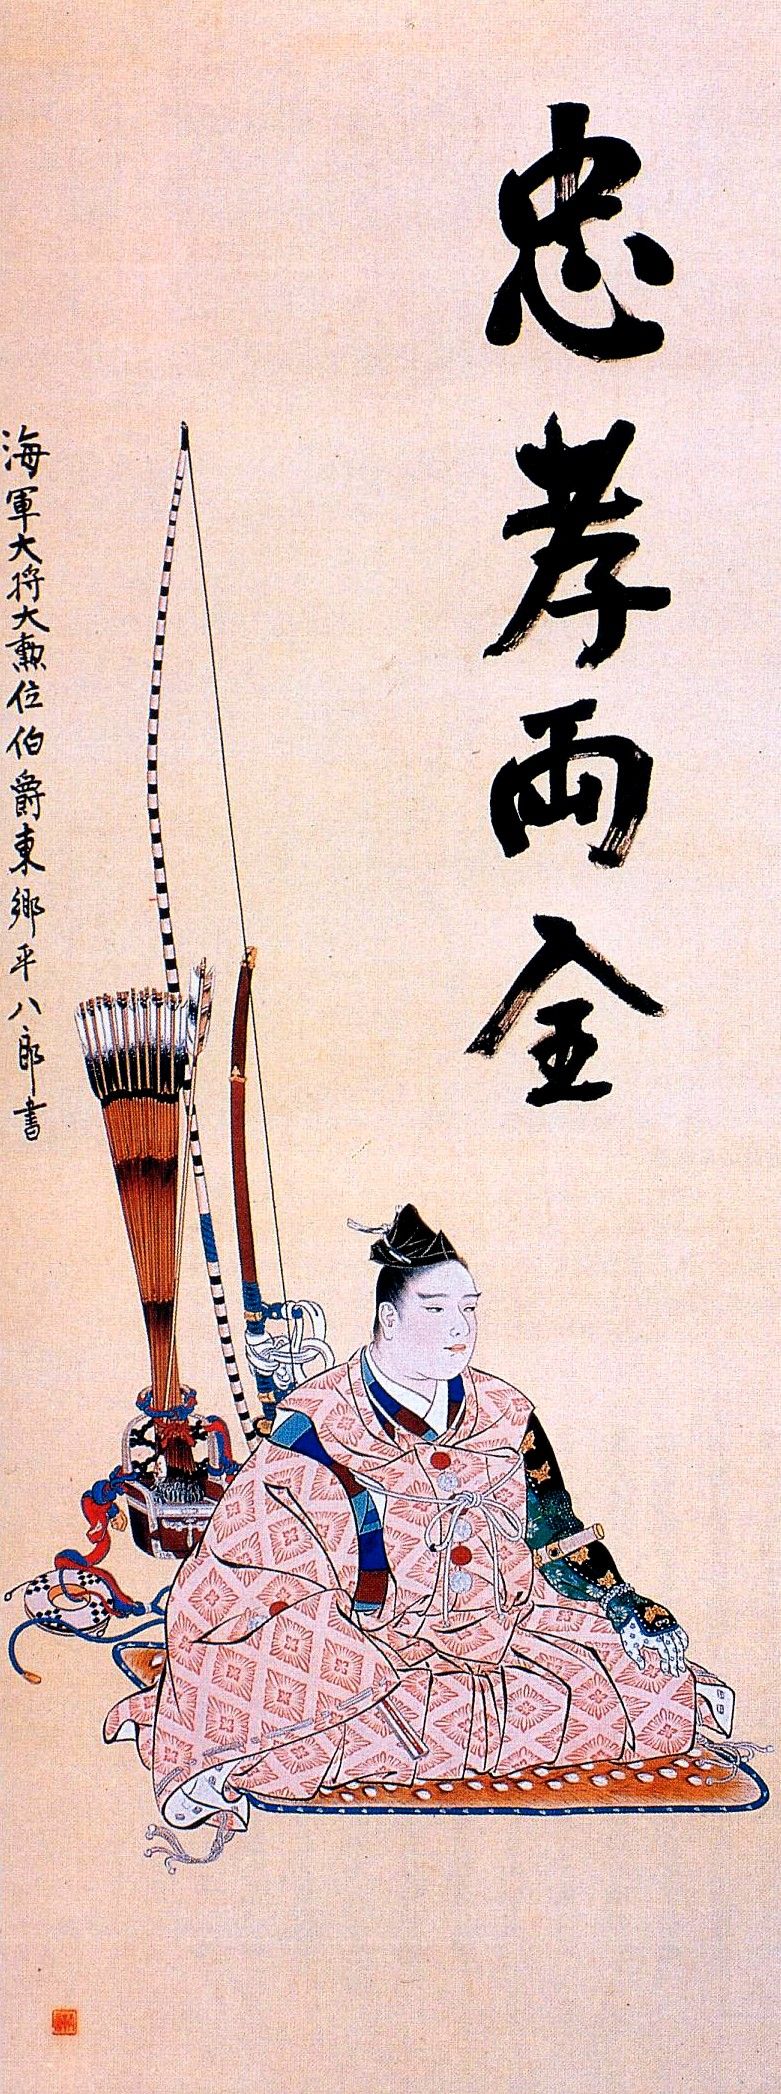 忠孝両全
海軍大将大勲位伯爵東郷平八郎書